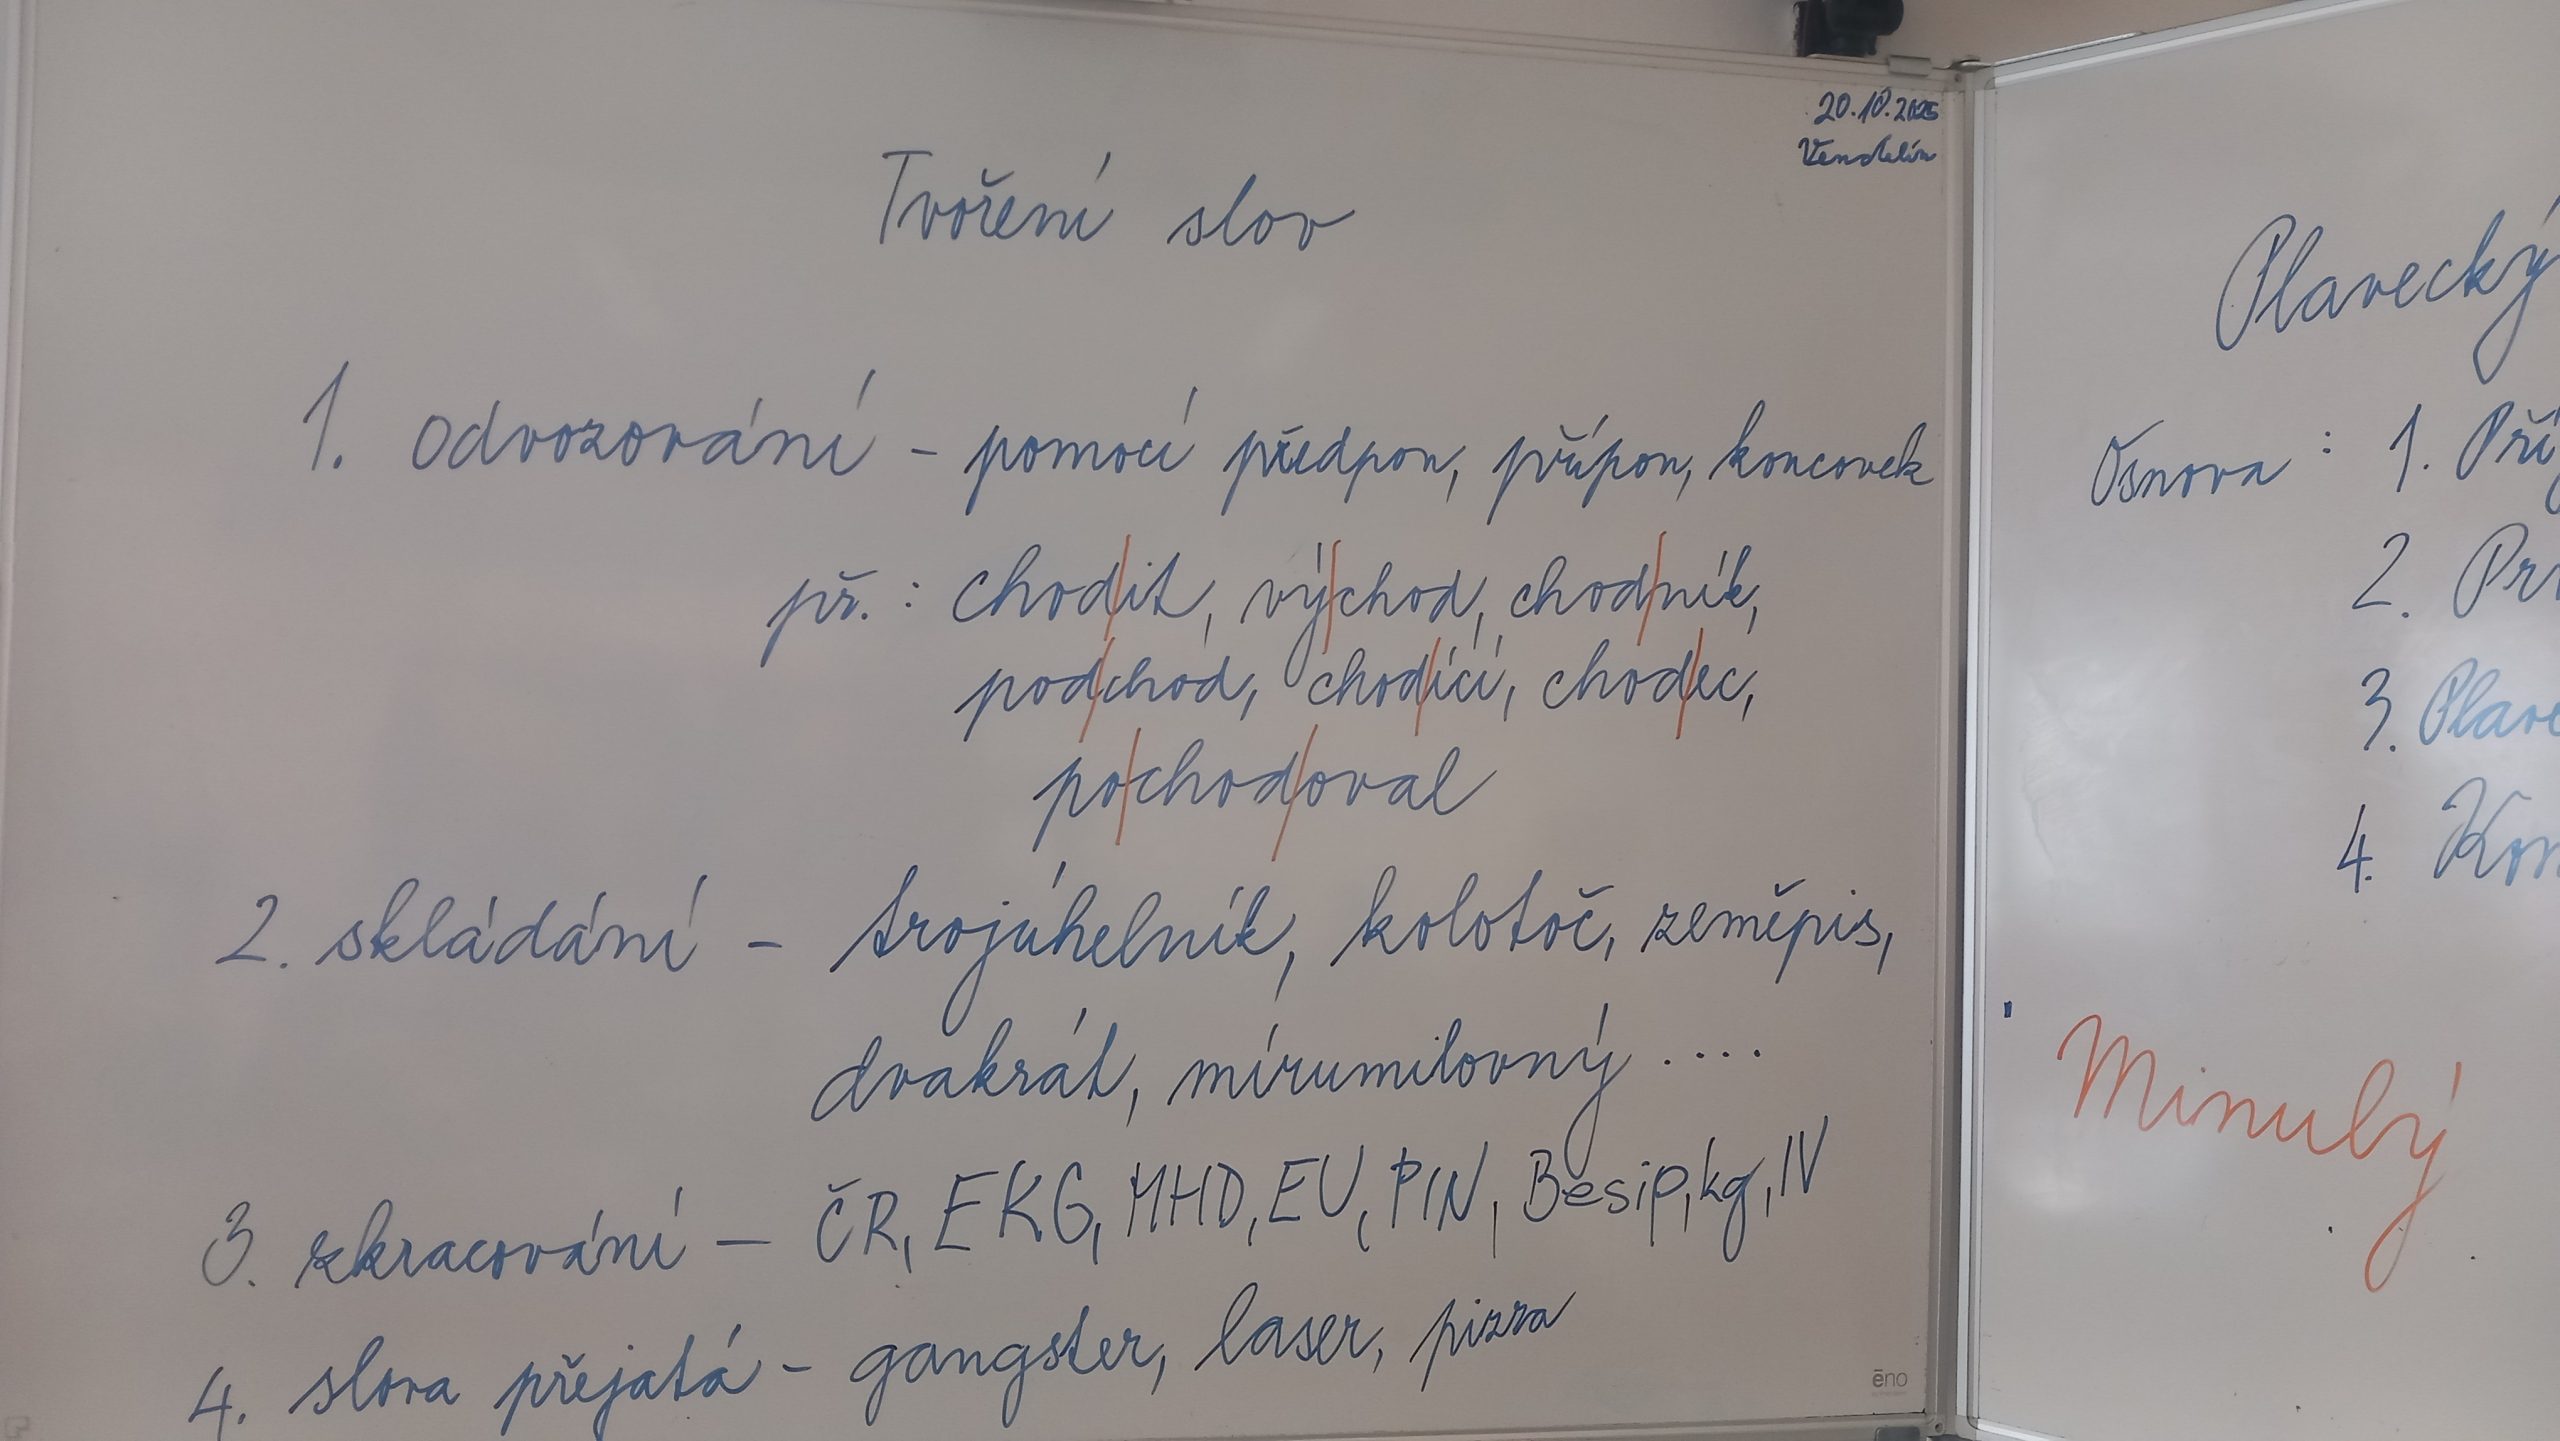 20.10.2025
Vendelín
Tvoření slov
1. odvozování - pomocí předpon, přípon, koncovek
př. : chod/it, vý/chod, chod/ník,
pod/chod, chod/ící, chod/ec,
po/chod/oval
2. skládání - trojúhelník, kolotoč, zeměpis,
dvakrát, mírumilovný ....
3. zkracování - ČR, EKG, MHD, EU, PIN, Besip, kg, IV
4. slova přejatá - gangster, laser, pizza
ēno
Plavecký
Osnova : 1. Pří
2. Prv
3. Plave
4. Kon
Minulý